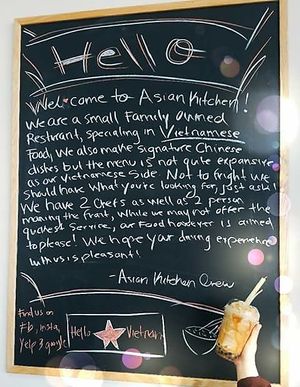 Hello
Welcome to Asian Kitchen!
we are a small Family owned
Restrant, specialing in Vietnamese
Food, we also make signature Chinese
dishes but the menu is not quite expansive
as our Vietnamese side. Not to fright we
should have what you're looking for, just ask!
We have 2 Chefs as well as 2 person
maning the front, while we may not offer the
quckest service, our Food however is aimed
to please! We hope your dining experience
with us is pleasant!
-Asian Kitchen Crew
Find us on
Fb, insta,
Yelp & google
Hello Vietnam